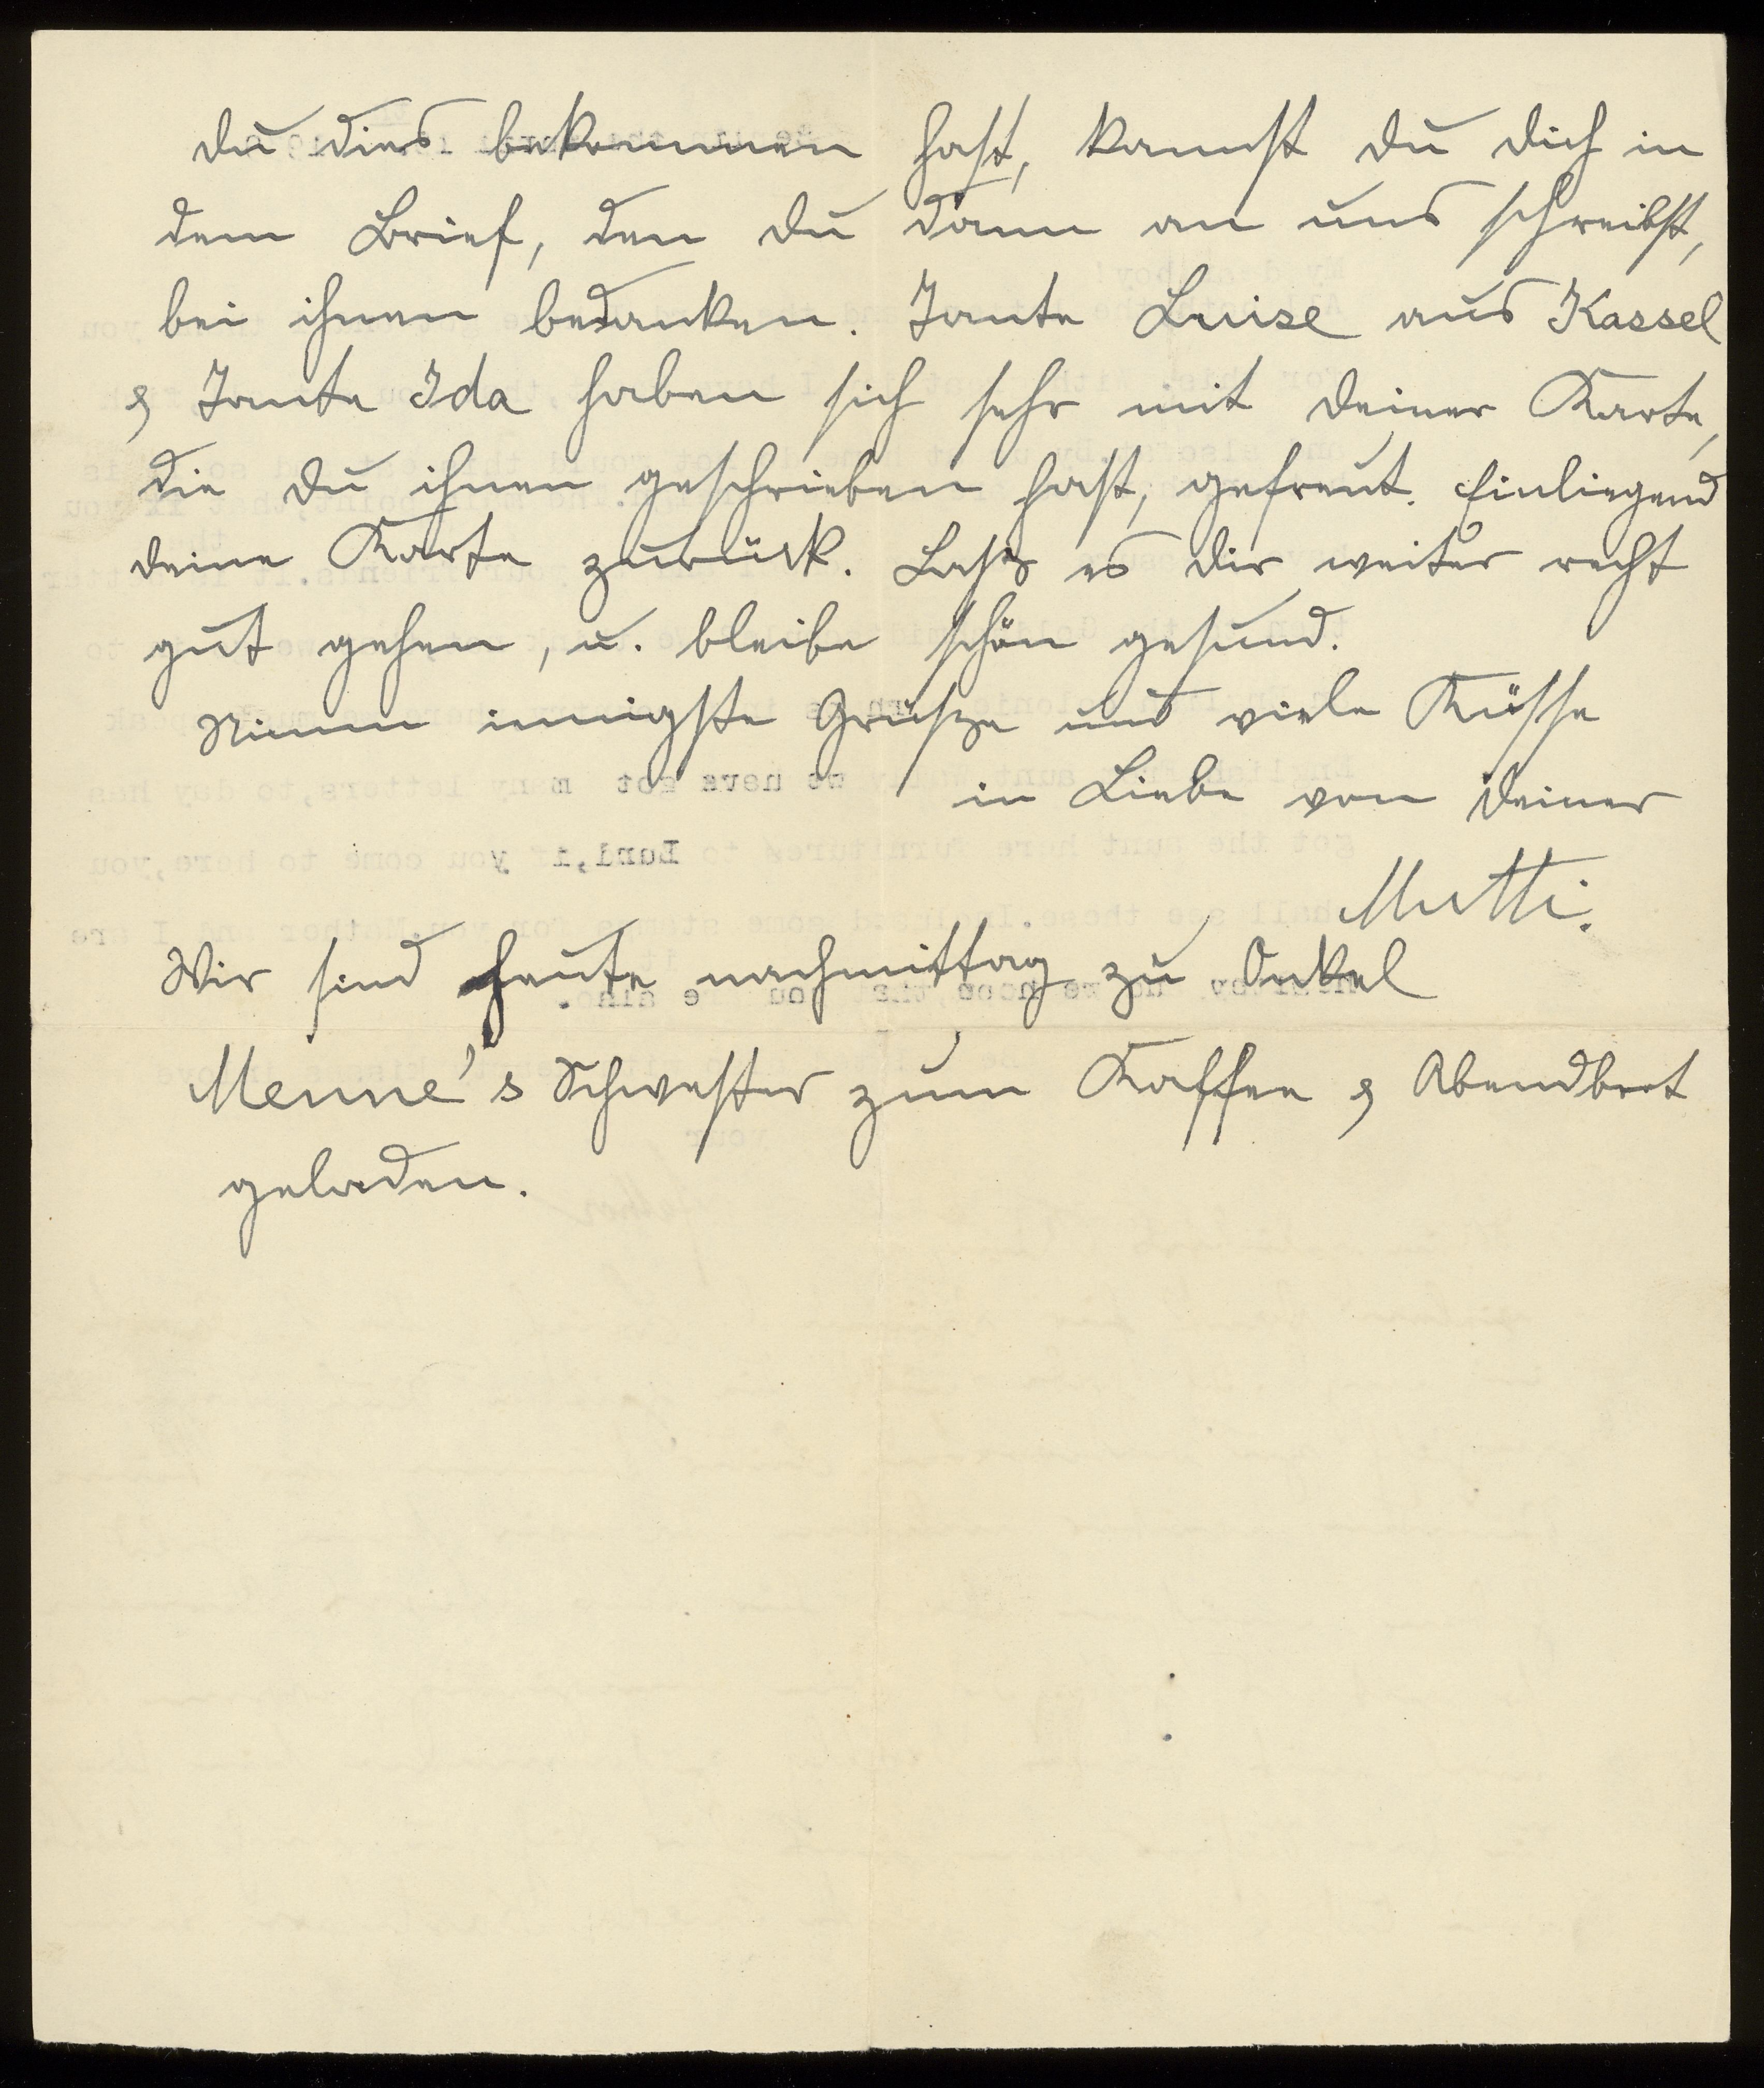 du dies bekommen hast, kannst du dich in
dem Brief, den du dann an uns schreibst,
bei ihnen bedanken. Tante Luise aus Kassel
& Tante Ida haben sich sehr mit deiner Karte,
die du ihnen geschrieben hast, gefreut. Einliegend
deine Karte zurück. Lass es dir weiter recht
gut gehen, u. bleibe schön gesund.
Nimm innigste Grüsze und viele Küsse
in Liebe von deiner
Mutti.
Wir sind heute nachmittag zu Onkel
Menne's Schwester zum Kaffee & Abendbrot
geladen.